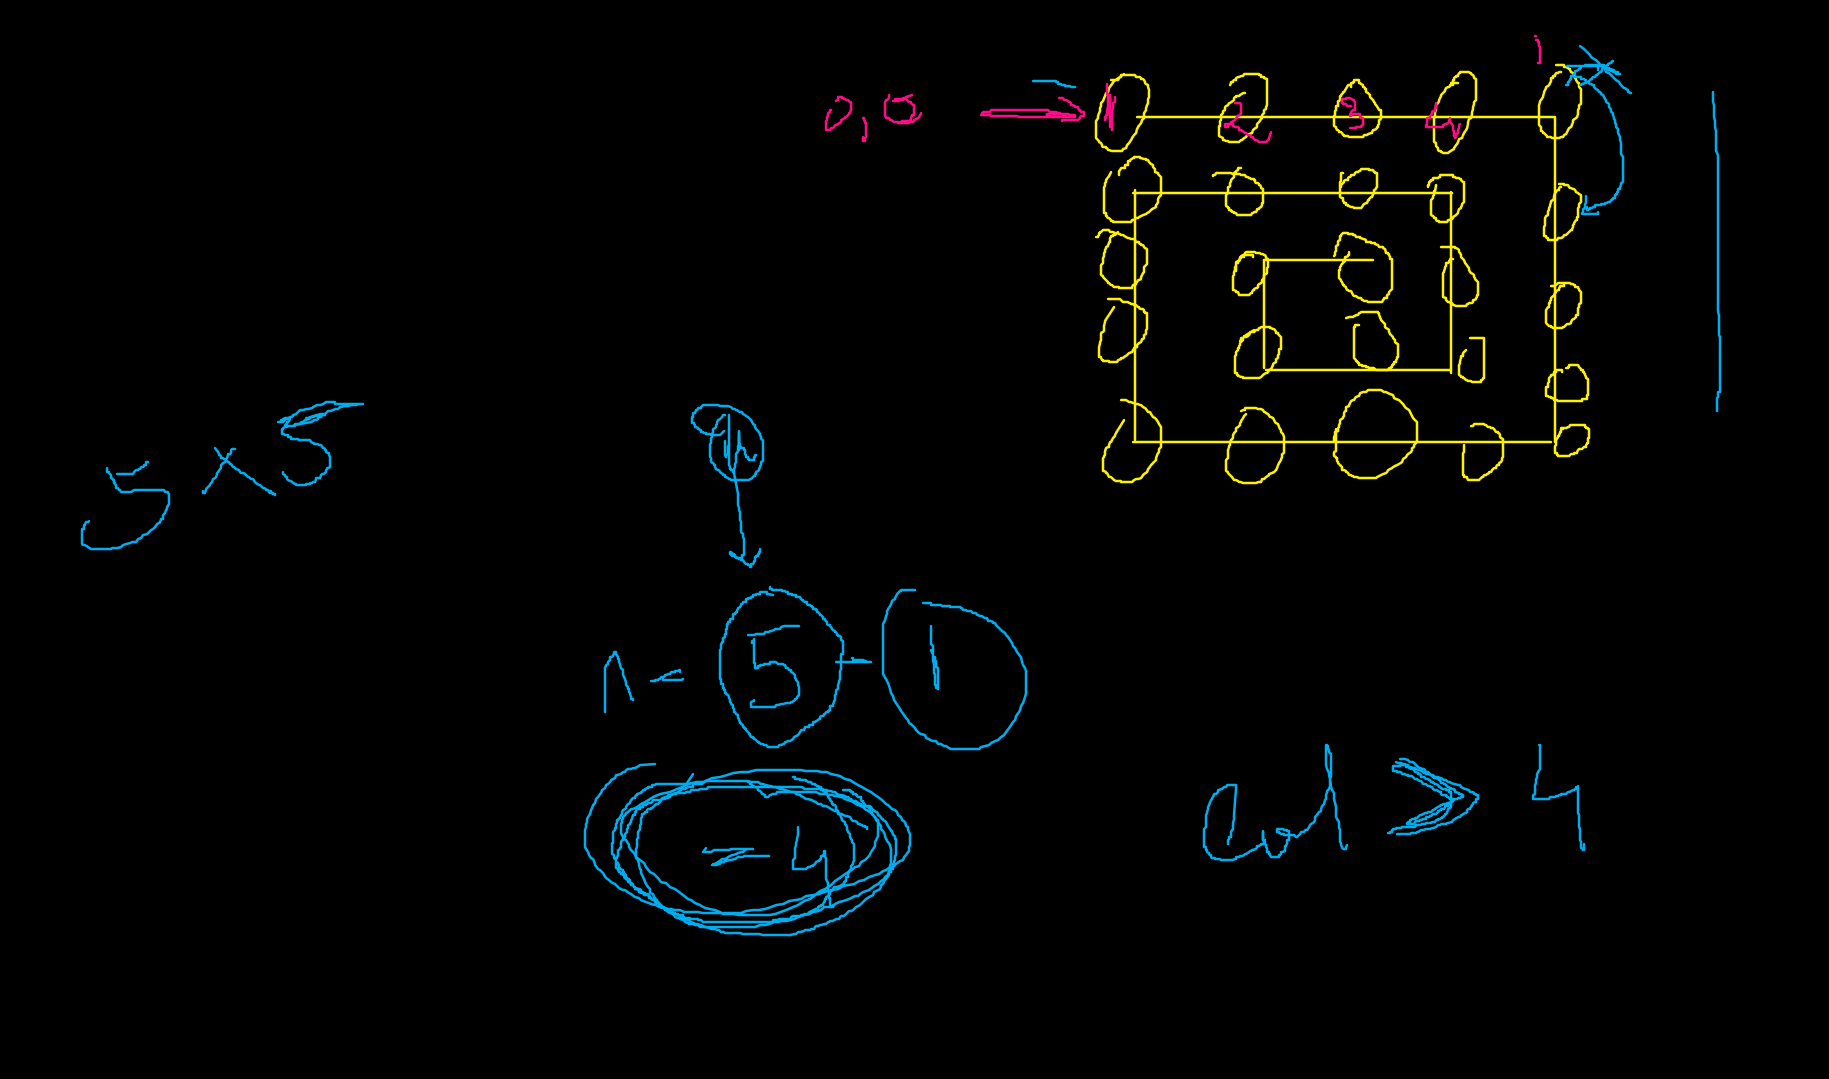 0,0 1 2 3 4
5 x 5
n
n = 5 - 1
= 4
col > 4